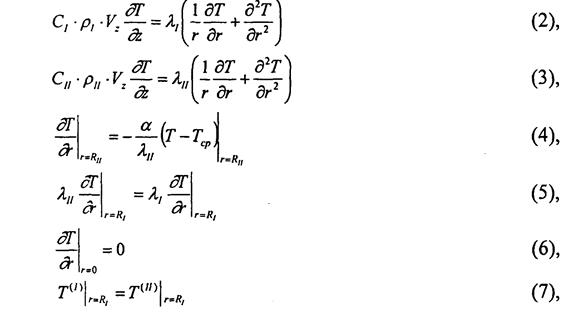 C_I · ρ_I · V_z ∂T/∂z = λ_I (1/r ∂T/∂r + ∂²T/∂r²) (2),
C_II · ρ_II · V_z ∂T/∂z = λ_II (1/r ∂T/∂r + ∂²T/∂r²) (3),
∂T/∂r |_{r=R_II} = − α/λ_II (T − T_cp) |_{r=R_II} (4),
λ_II ∂T/∂r |_{r=R_I} = λ_I ∂T/∂r |_{r=R_I} (5),
∂T/∂r |_{r=0} = 0 (6),
T^(I) |_{r=R_I} = T^(II) |_{r=R_I} (7),